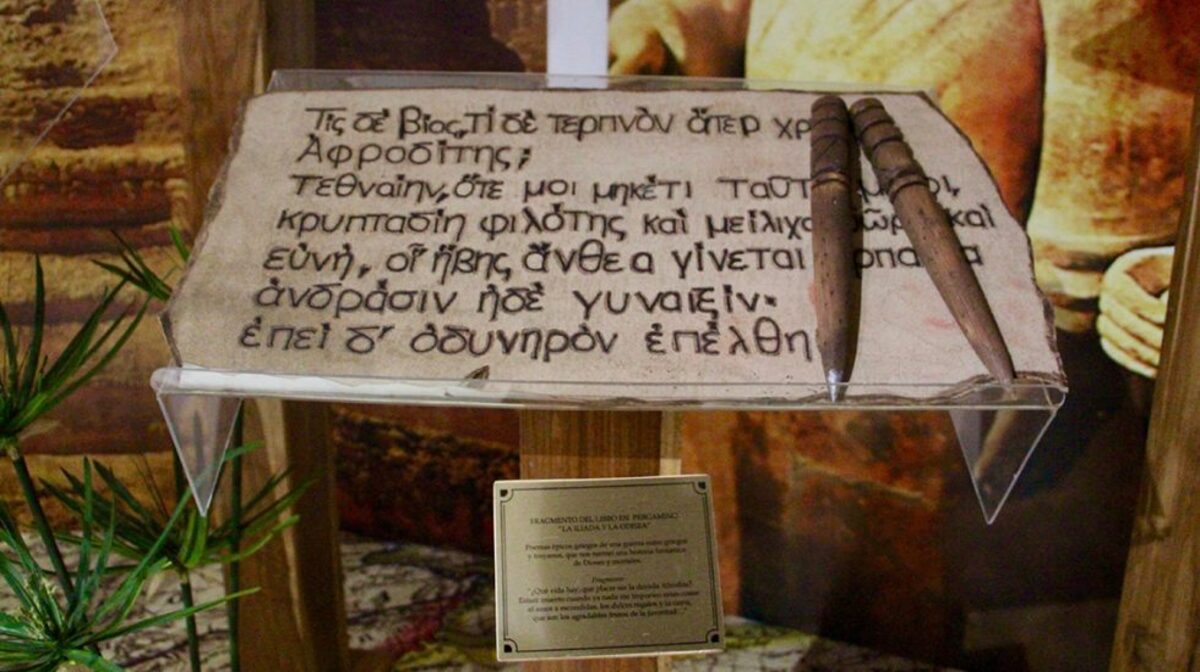 Τίς δὲ βίος, τί δὲ τερπνὸν ἄπερ χρ
Ἀφροδίτης;
τεθναίην, ὅτε μοι μηκέτι ταῦτ
κρυπταδίη φιλότης καὶ μείλιχα καὶ
εὐνή, οἳ ἥβης, ἄνθεα γίνεται
ἀνδράσιν ἠδὲ γυναιξίν·
ἐπεὶ δ' ὀδυνηρὸν ἐπέλθη
FRAGMENTO DEL LIBRO EN PERGAMINO
"LA ILIADA Y LA ODISEA"
Poemas épicos griegos de una guerra entre griegos
y troyanos, que nos narran una historia fantástica
de Dioses y mortales.
Fragmento
"¿Qué vida hay, qué placer sin la dorada Afrodita?
Estaré muerto cuando ya nada me importen cosas como
el amor a escondidas, los dulces regalos y la cama,
que son los agradables frutos de la juventud..."